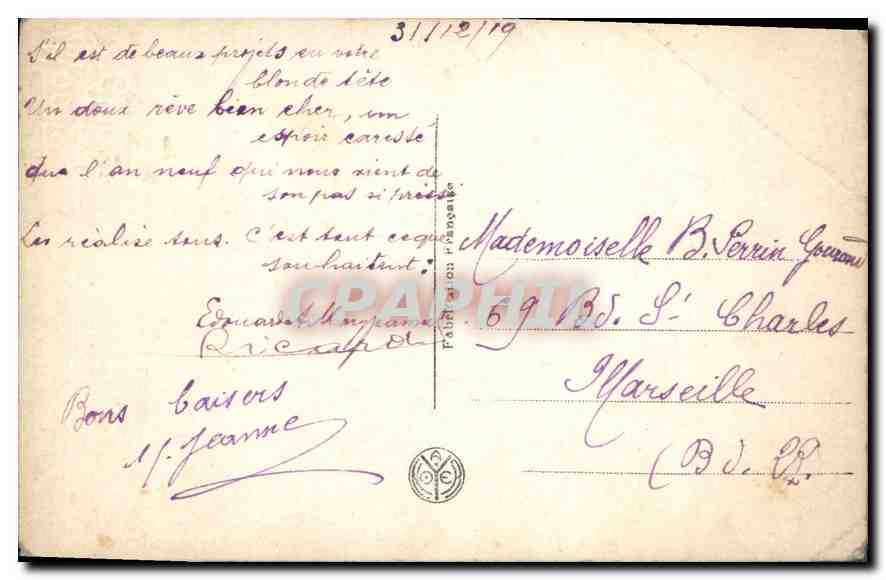 31/12/19
S'il est de beaux projets en votre
blonde tête
Un doux rêve bien cher, un
espoir caressé
Que l'an neuf qui nous vient de
son pas si pressé
Les réalise tous. C'est tout ce que
souhaitent :
Edouard &
Ricard
Bons baisers
M. Jeanne
Fabrication Française
CPAPHIL
Mademoiselle B. Perrin
69 Bd. St Charles
Marseille
(Bd. R.